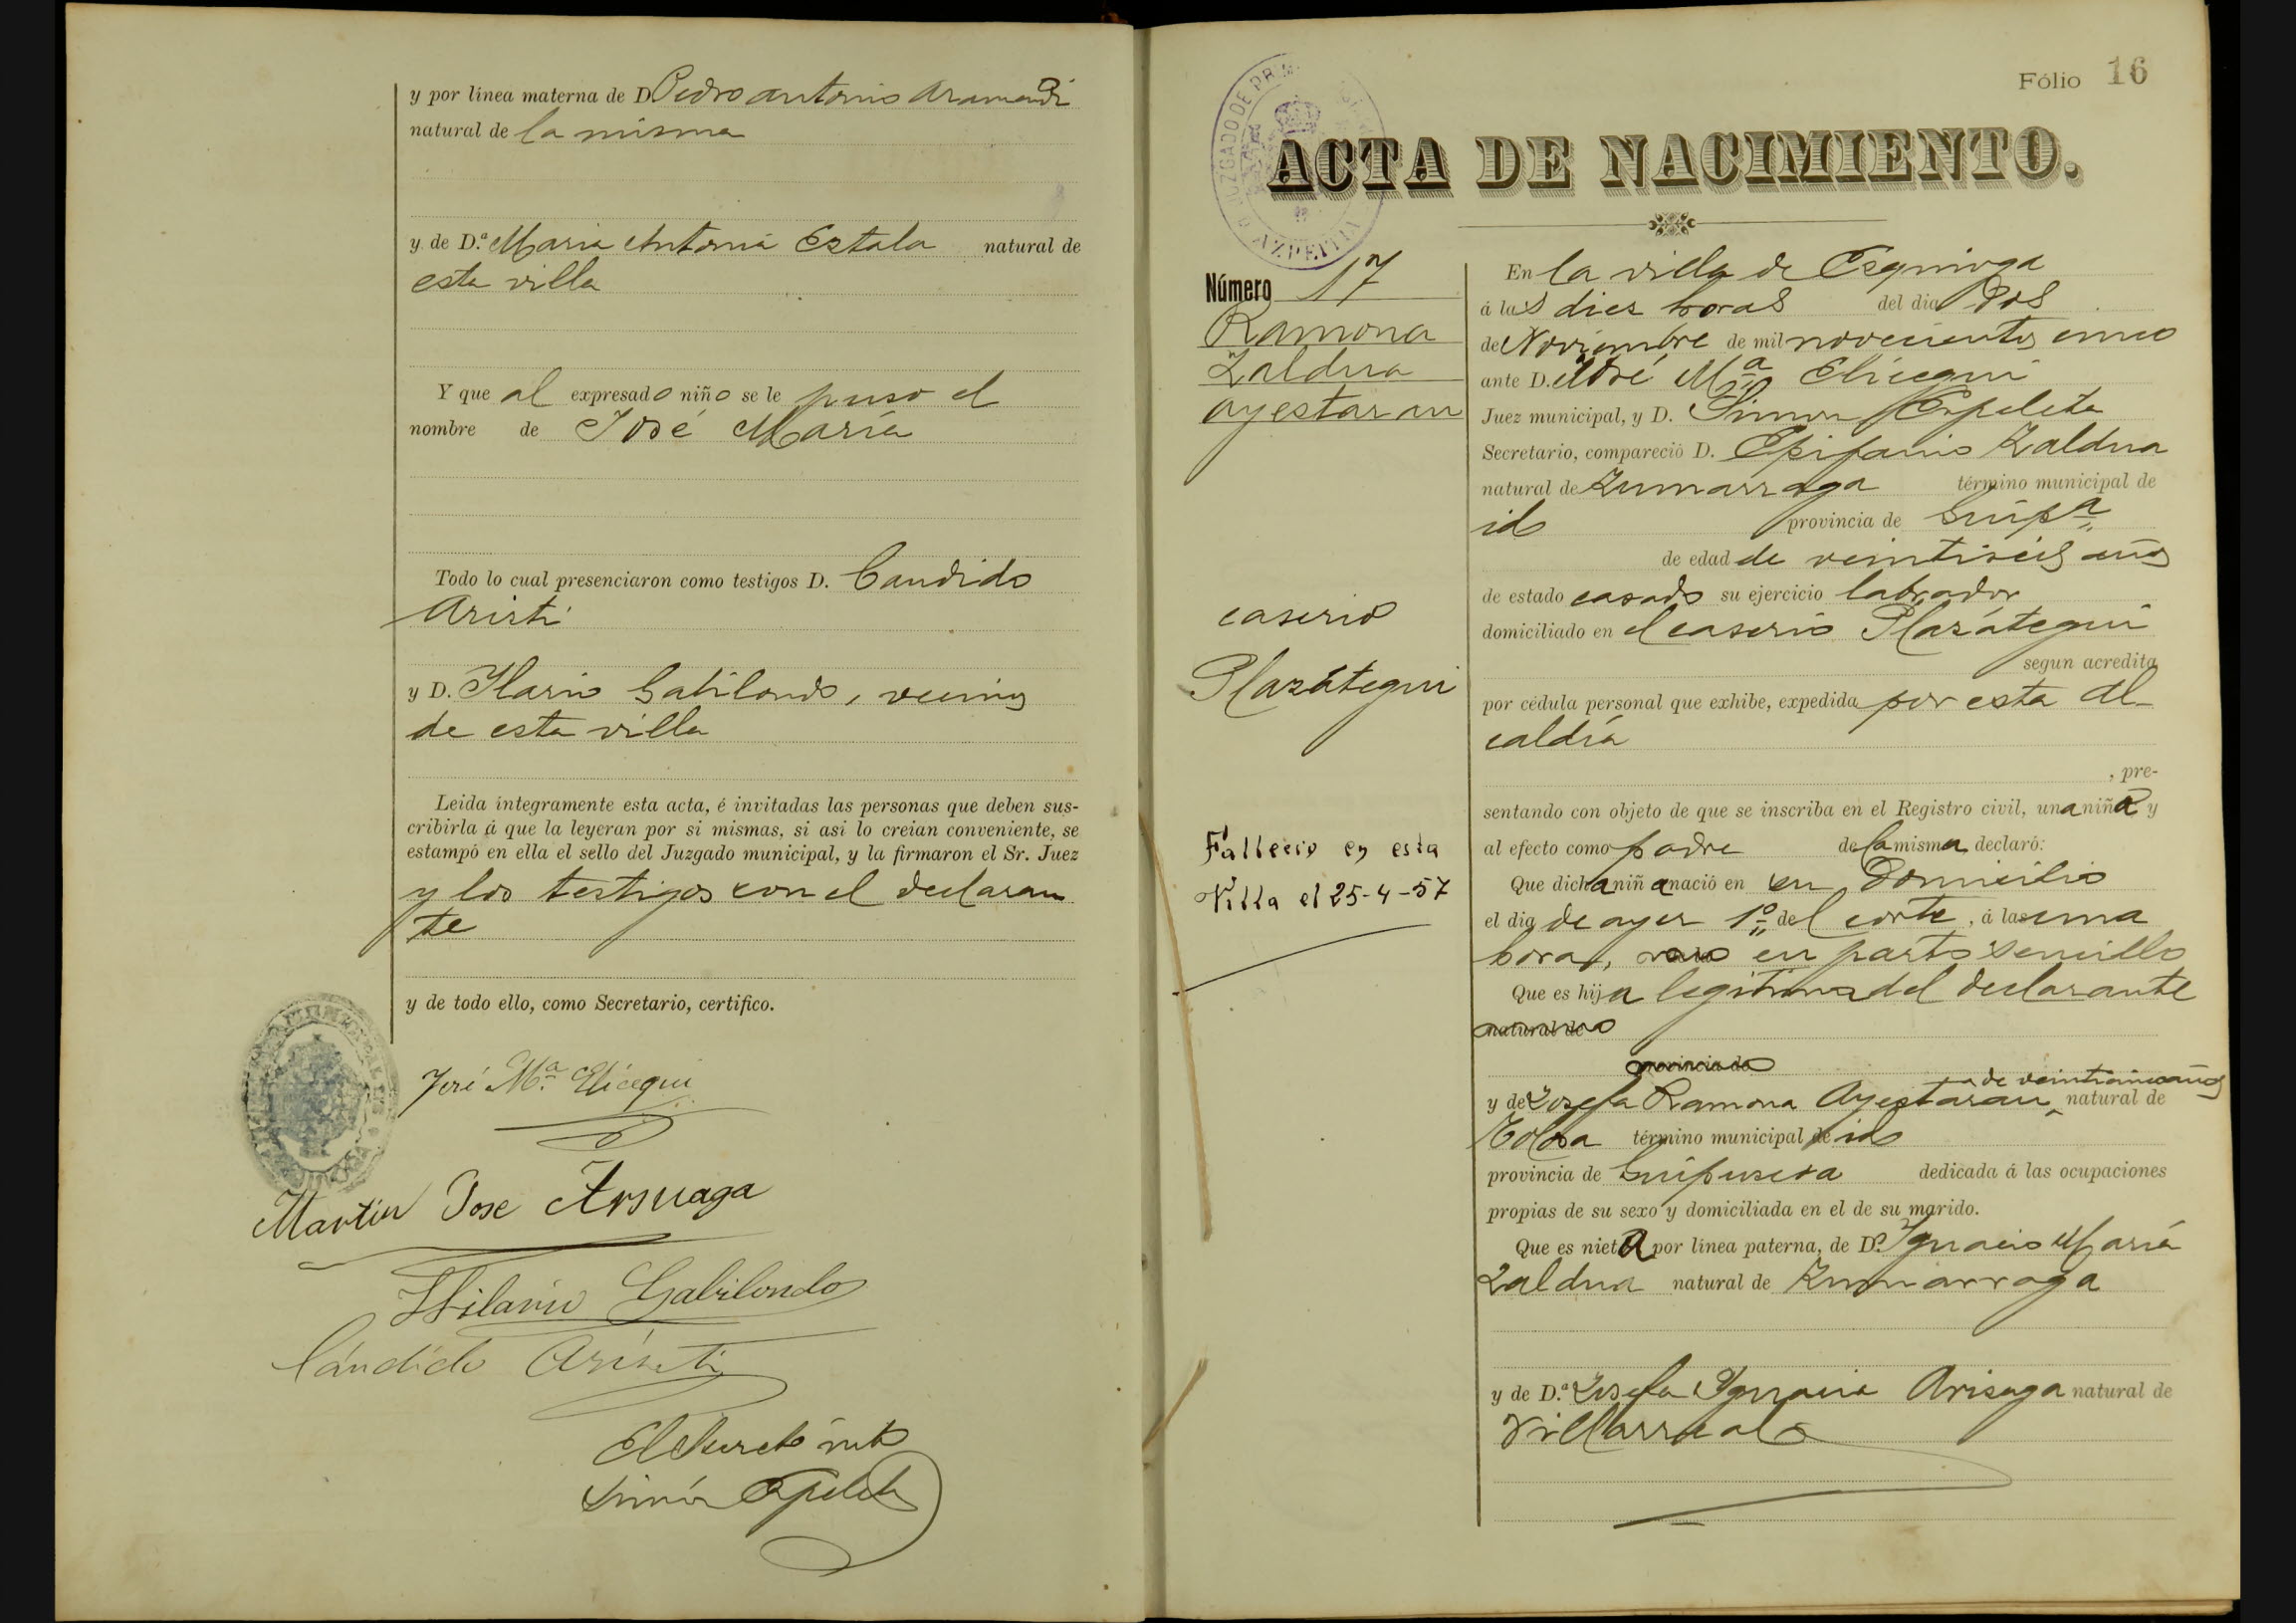 y por línea materna de D. Pedro Antonio Aramendi
natural de la misma
y de D.ª Maria Antonia Eztala natural de
esta villa
Y que al expresado niño se le puso el
nombre de José María
Todo lo cual presenciaron como testigos D. Candido
Aristi
y D. Ilario Gabilondo, vecinos
de esta villa
Leida íntegramente esta acta, é invitadas las personas que deben sus-
cribirla á que la leyeran por si mismas, si asi lo creian conveniente, se
estampó en ella el sello del Juzgado municipal, y la firmaron el Sr. Juez
y los testigos con el declaran
te
y de todo ello, como Secretario, certifico.
José M.ª Elicegui
Martin Jose Arsuaga
Hilario Gabilondo
Cándido Aristi
Simón Ezpeleta
Fólio 16
JUZGADO DE
AZPEITIA
ACTA DE NACIMIENTO.
Número 17
Ramona
Zaldua
Ayestaran
caserio
Plazátegui
Fallecio en esta
Villa el 25-4-57
En la villa de Ezquioga
á las diez horas del dia Dos
de Noviembre de mil novecientos cinco
ante D. José Mª Elicegui
Juez municipal, y D. Simon Ezpeleta
Secretario, compareció D. Epifanio Zaldua
natural de Zumarraga término municipal de
id provincia de Guipª
de edad de veintiseis años
de estado casado su ejercicio labrador
domiciliado en el caserio Plazátegui
segun acredita
por cédula personal que exhibe, expedida por esta Al-
caldía
, pre-
sentando con objeto de que se inscriba en el Registro civil, una niña y
al efecto como padre de la misma declaró:
Que dicha niña nació en su Domicilio
el dia de ayer 1º del corte, á las una
hora, en parto sencillo
Que es hija legitima del declarante
natural de
provincia de
de veinticinco años
y de Josefa Ramona Ayestaran natural de
Tolosa término municipal de id
provincia de Guipuzcoa dedicada á las ocupaciones
propias de su sexo y domiciliada en el de su marido.
Que es nieta por línea paterna, de D. Ignacio María
Zaldua natural de Zumarraga
y de D.ª Josefa Ignacia Arizaga natural de
Villarreal